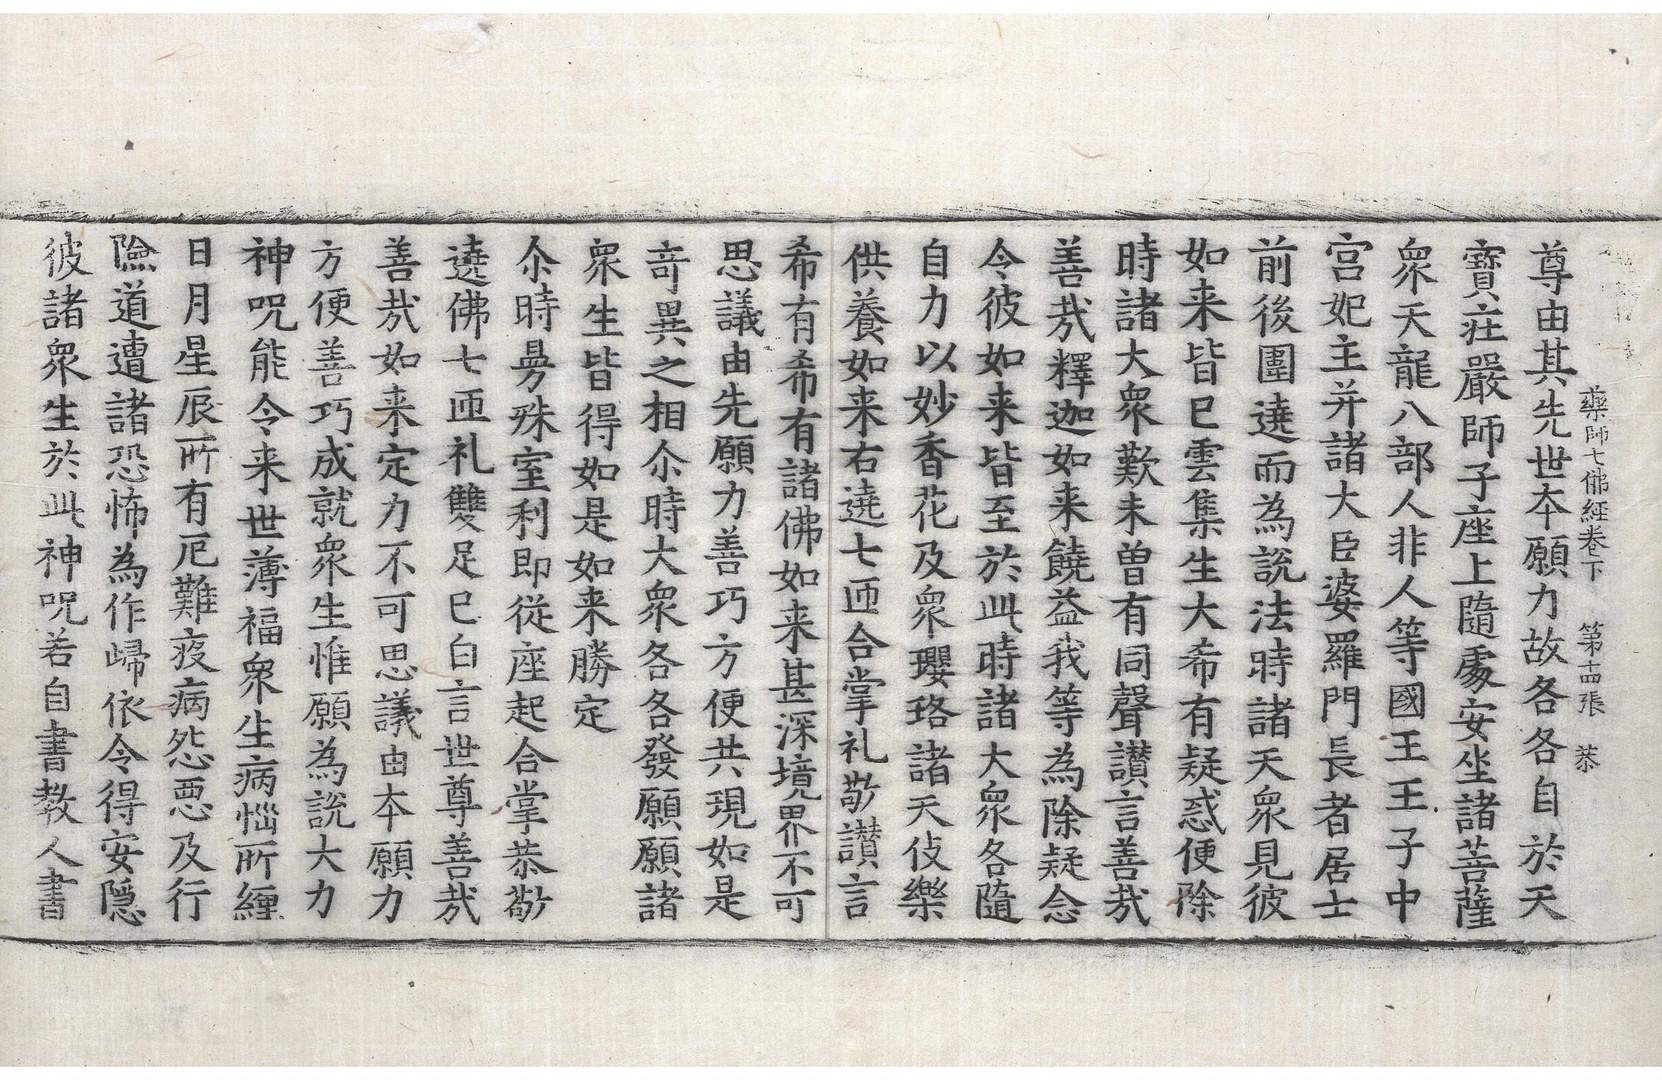 藥師七佛經卷下　第十四張　恭
尊由其先世本願力故各各自於天
寶莊嚴師子座上隨處安坐諸菩薩
衆天龍八部人非人等國王王子中
宮妃主并諸大臣婆羅門長者居士
前後圍遶而為說法時諸天衆見彼
如来皆已雲集生大希有疑惑便除
時諸大衆歎未曽有同聲讃言善㢤
善㢤釋迦如来饒益我等為除疑念
令彼如来皆至於此時諸大衆各隨
自力以妙香花及衆瓔珞諸天伎樂
供養如来右遶七匝合掌礼敬讃言
希有希有諸佛如来甚深境界不可
思議由先願力善巧方便共現如是
竒異之相尒時大衆各各發願願諸
衆生皆得如是如来勝定
尒時曼殊室利即從座起合掌恭敬
遶佛七匝礼雙足已白言世尊善㢤
善㢤如来定力不可思議由本願力
方便善巧成就衆生惟願為說大力
神呪能令来世薄福衆生病惱所纒
日月星辰所有厄難疫病怨惡及行
險道遭諸恐怖為作歸依令得安隱
彼諸衆生於此神呪若自書教人書